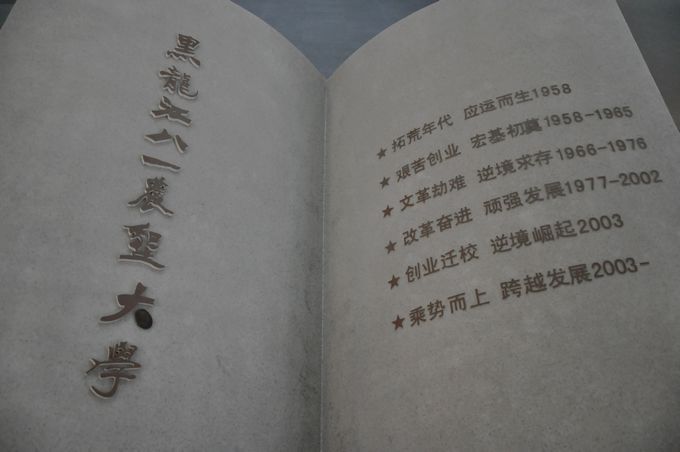 黑龍江八一農墾大學
★拓荒年代 应运而生1958
★艰苦创业 宏基初奠1958-1965
★文革劫难 逆境求存1966-1976
★改革奋进 顽强发展1977-2002
★创业迁校 逆境崛起2003
★乘势而上 跨越发展2003-